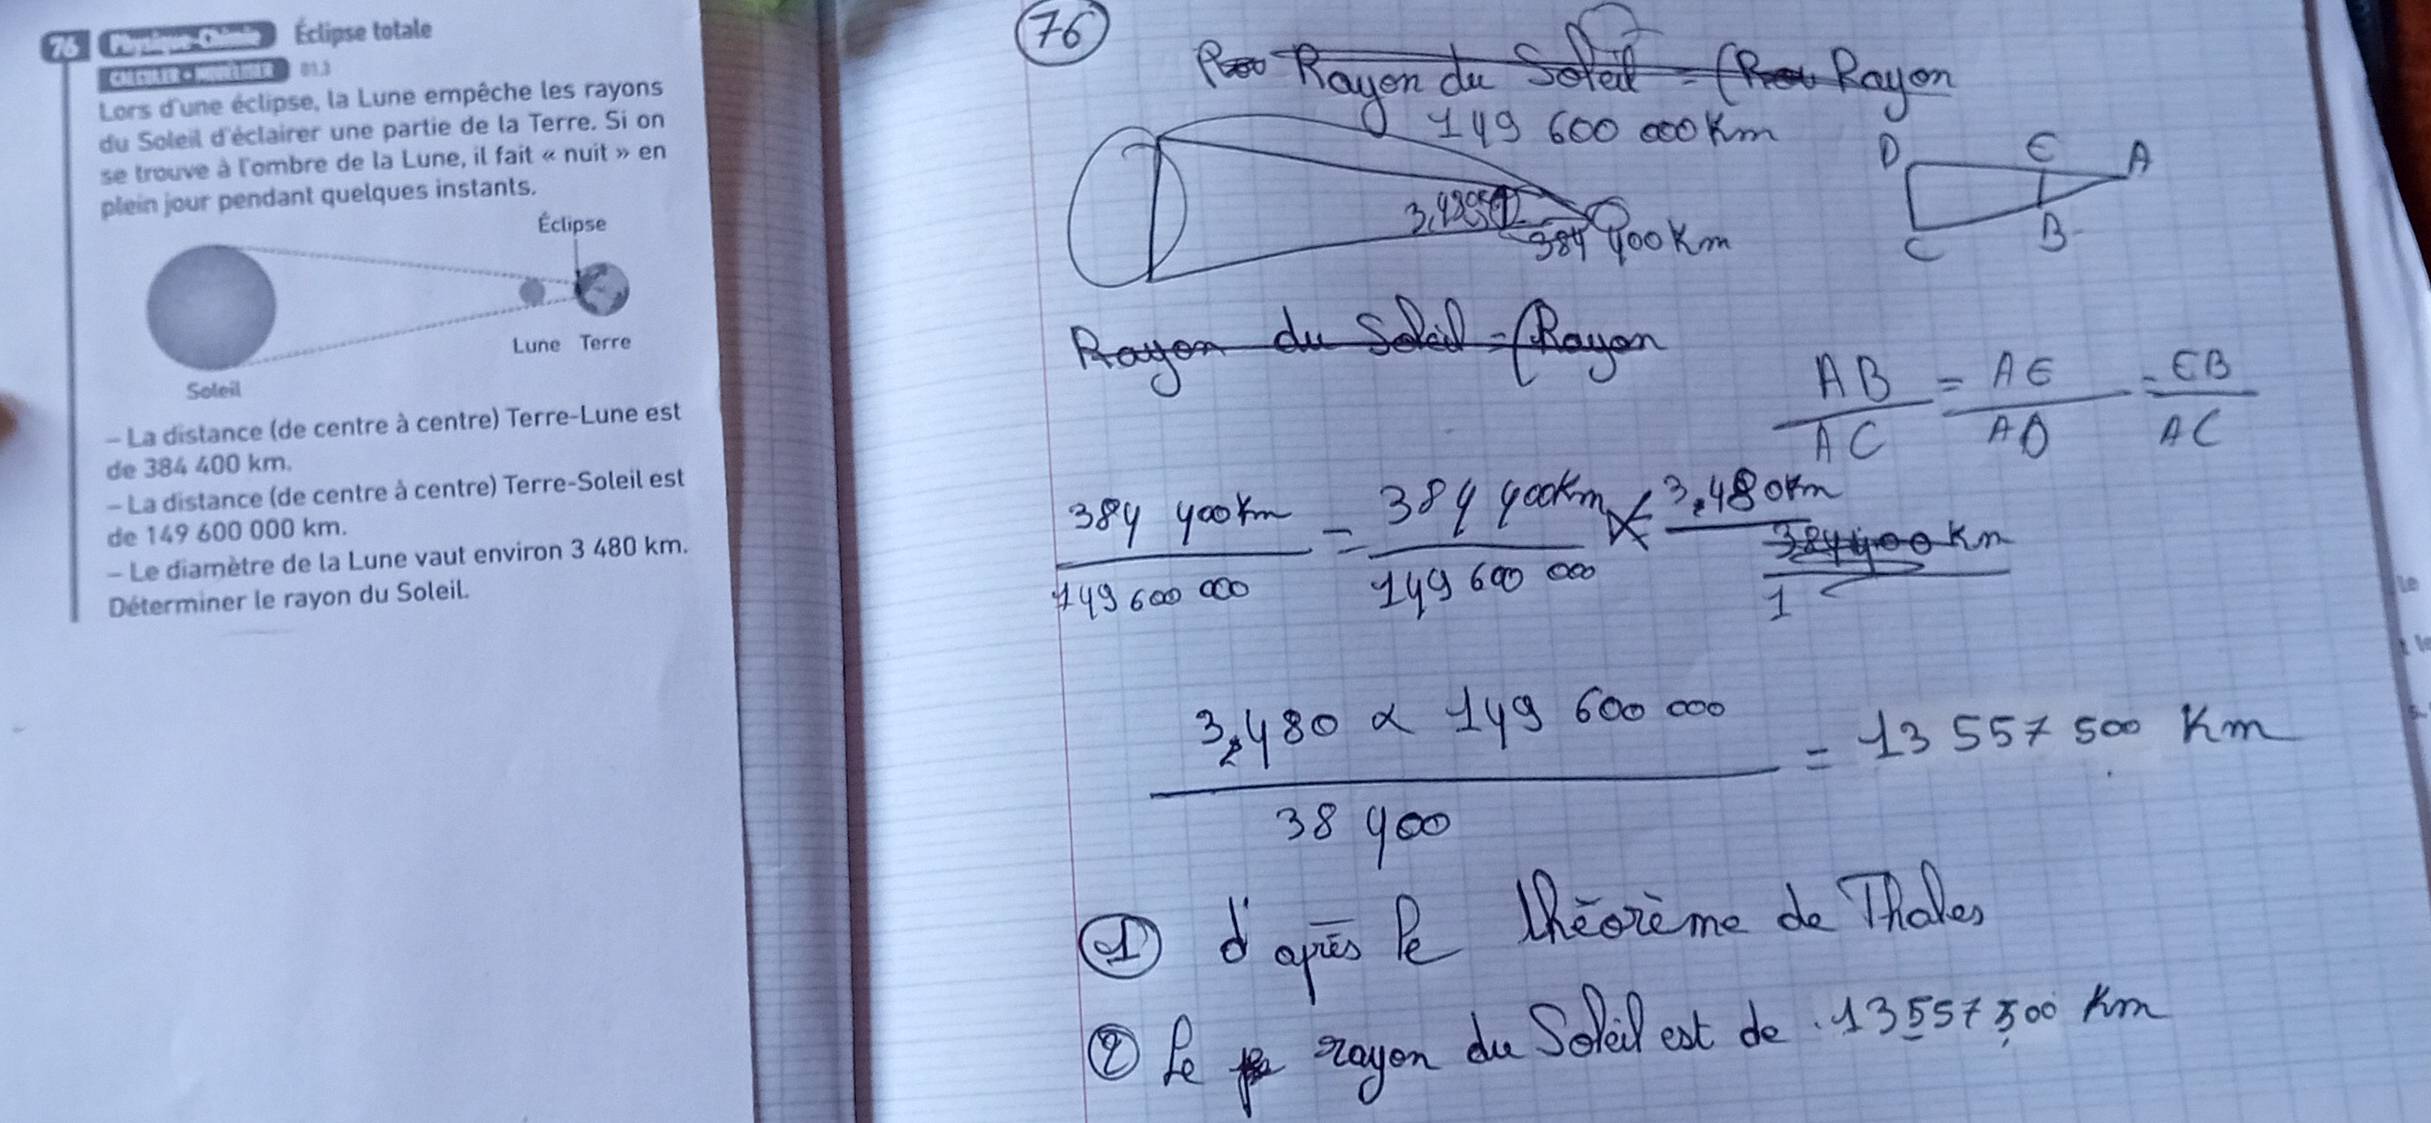 76 Physique-Chimie Éclipse totale
CALCULER • MODÉLISER D1.3
Lors d'une éclipse, la Lune empêche les rayons
du Soleil d'éclairer une partie de la Terre. Si on
se trouve à l'ombre de la Lune, il fait « nuit » en
plein jour pendant quelques instants.
Éclipse
Lune Terre
Soleil
– La distance (de centre à centre) Terre-Lune est
de 384 400 km.
– La distance (de centre à centre) Terre-Soleil est
de 149 600 000 km.
– Le diamètre de la Lune vaut environ 3 480 km.
Déterminer le rayon du Soleil.
76
Rayon du Soleil = (Rayon
149 600 000 Km
384 400 Km
D E A
C B
Rayon du Soleil = (Rayon
AB/AC = AE/AD = EB/AC
384 400 Km / 149 600 000 = 384 400 km / 149 600 000 × 3,480 km / 1
3,480 × 149 600 000 / 38 400 = 13 557 500 Km
① d'après le théorème de Thales
② Le rayon du Soleil est de 13 557 500 Km